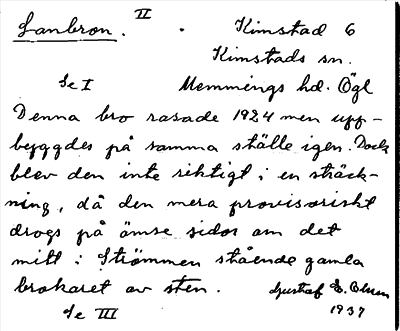 Lanbron. II . Kimstad 6
Kimstads sn.
Se I Memmings hd. Ögl
Denna bro rasade 1924 men upp-
byggdes på samma ställe igen. Dock
blev den inte riktigt i en sträck-
ning, då den mera provisoriskt
drogs på ömse sidor om det
mitt i Strömmen stående gamla
brokaret av sten. Gustaf E. Olsson
Se III 1937